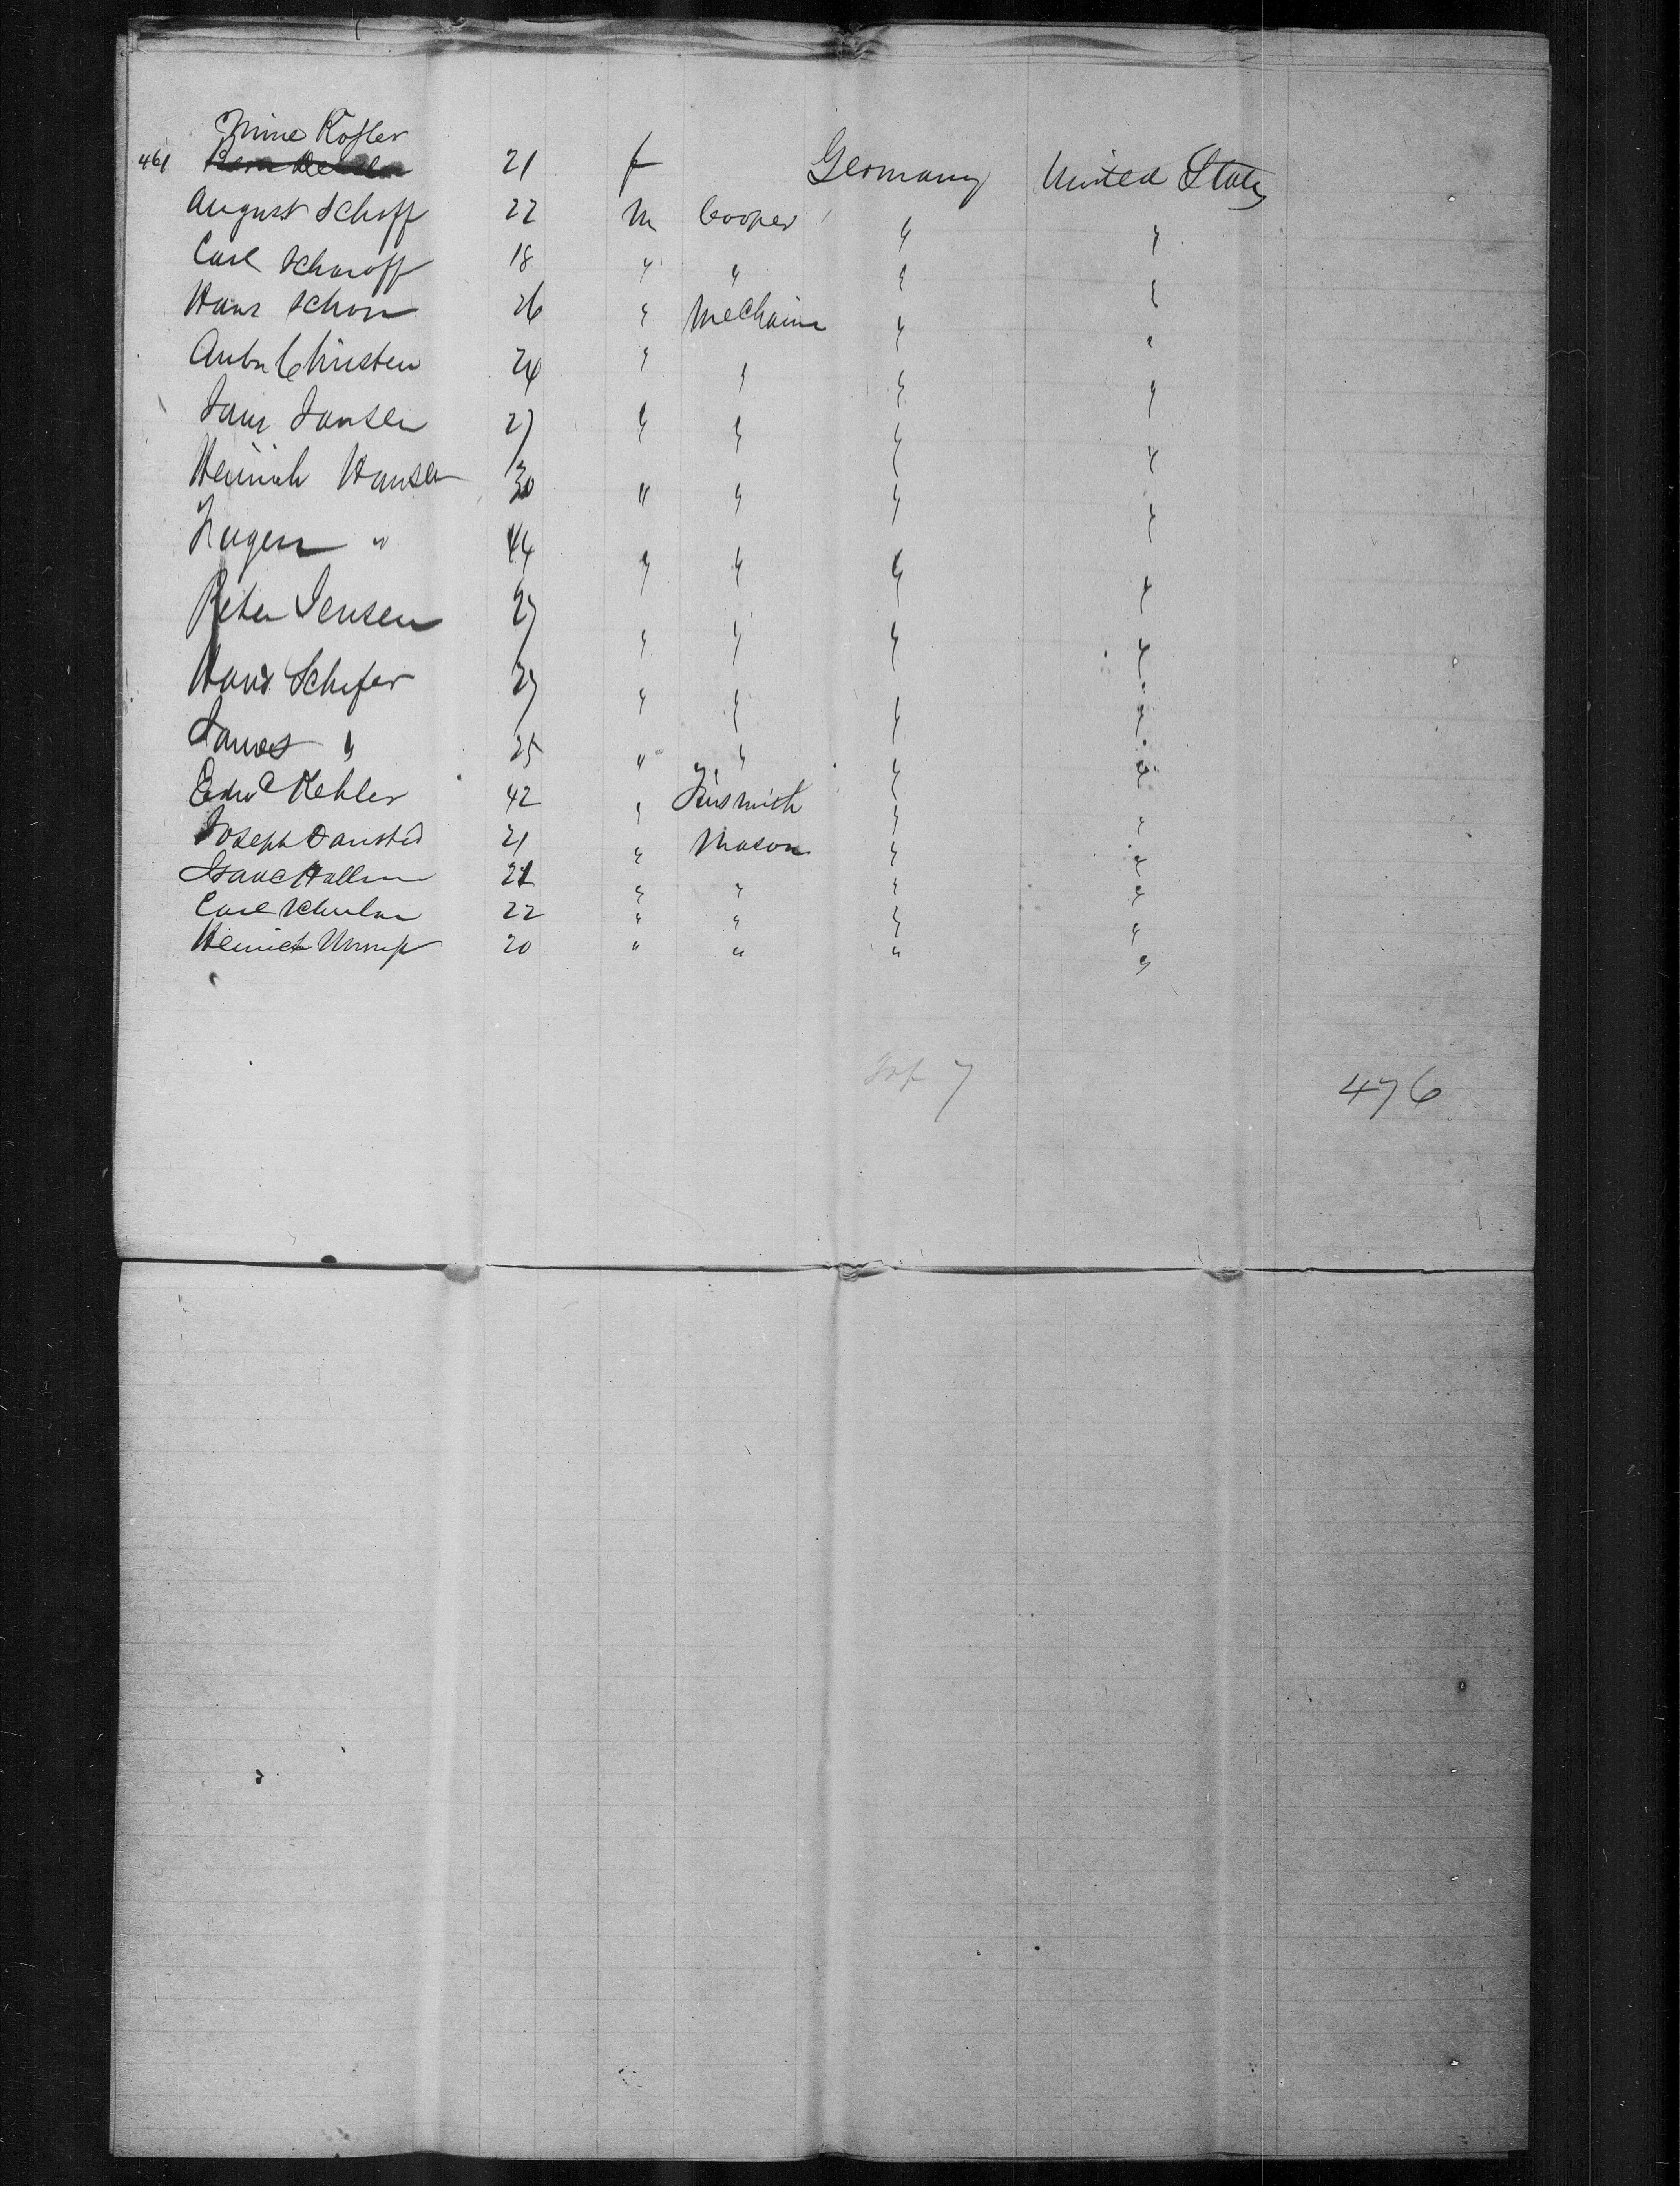 Mine Kofler
461 21 f Germany United States
August Schoff 22 m Cooper " "
Carl Scharoff 18 " " " "
Hans Schon 26 " Mechain " "
Anton Christen 24 " " " "
Jans Jansen 27 " " " "
Heinrich Hansen 30 " " " "
" 44 " " " "
Peter Jensen 27 " " " "
Hans Schefer 27 " " " "
James " 25 " " " "
Edwd Kehler 42 " Tinsmith " "
Joseph 21 " Mason " "
Isaac 21 " " " "
Carl 22 " " " "
Heinrich 20 " " " "
7 476